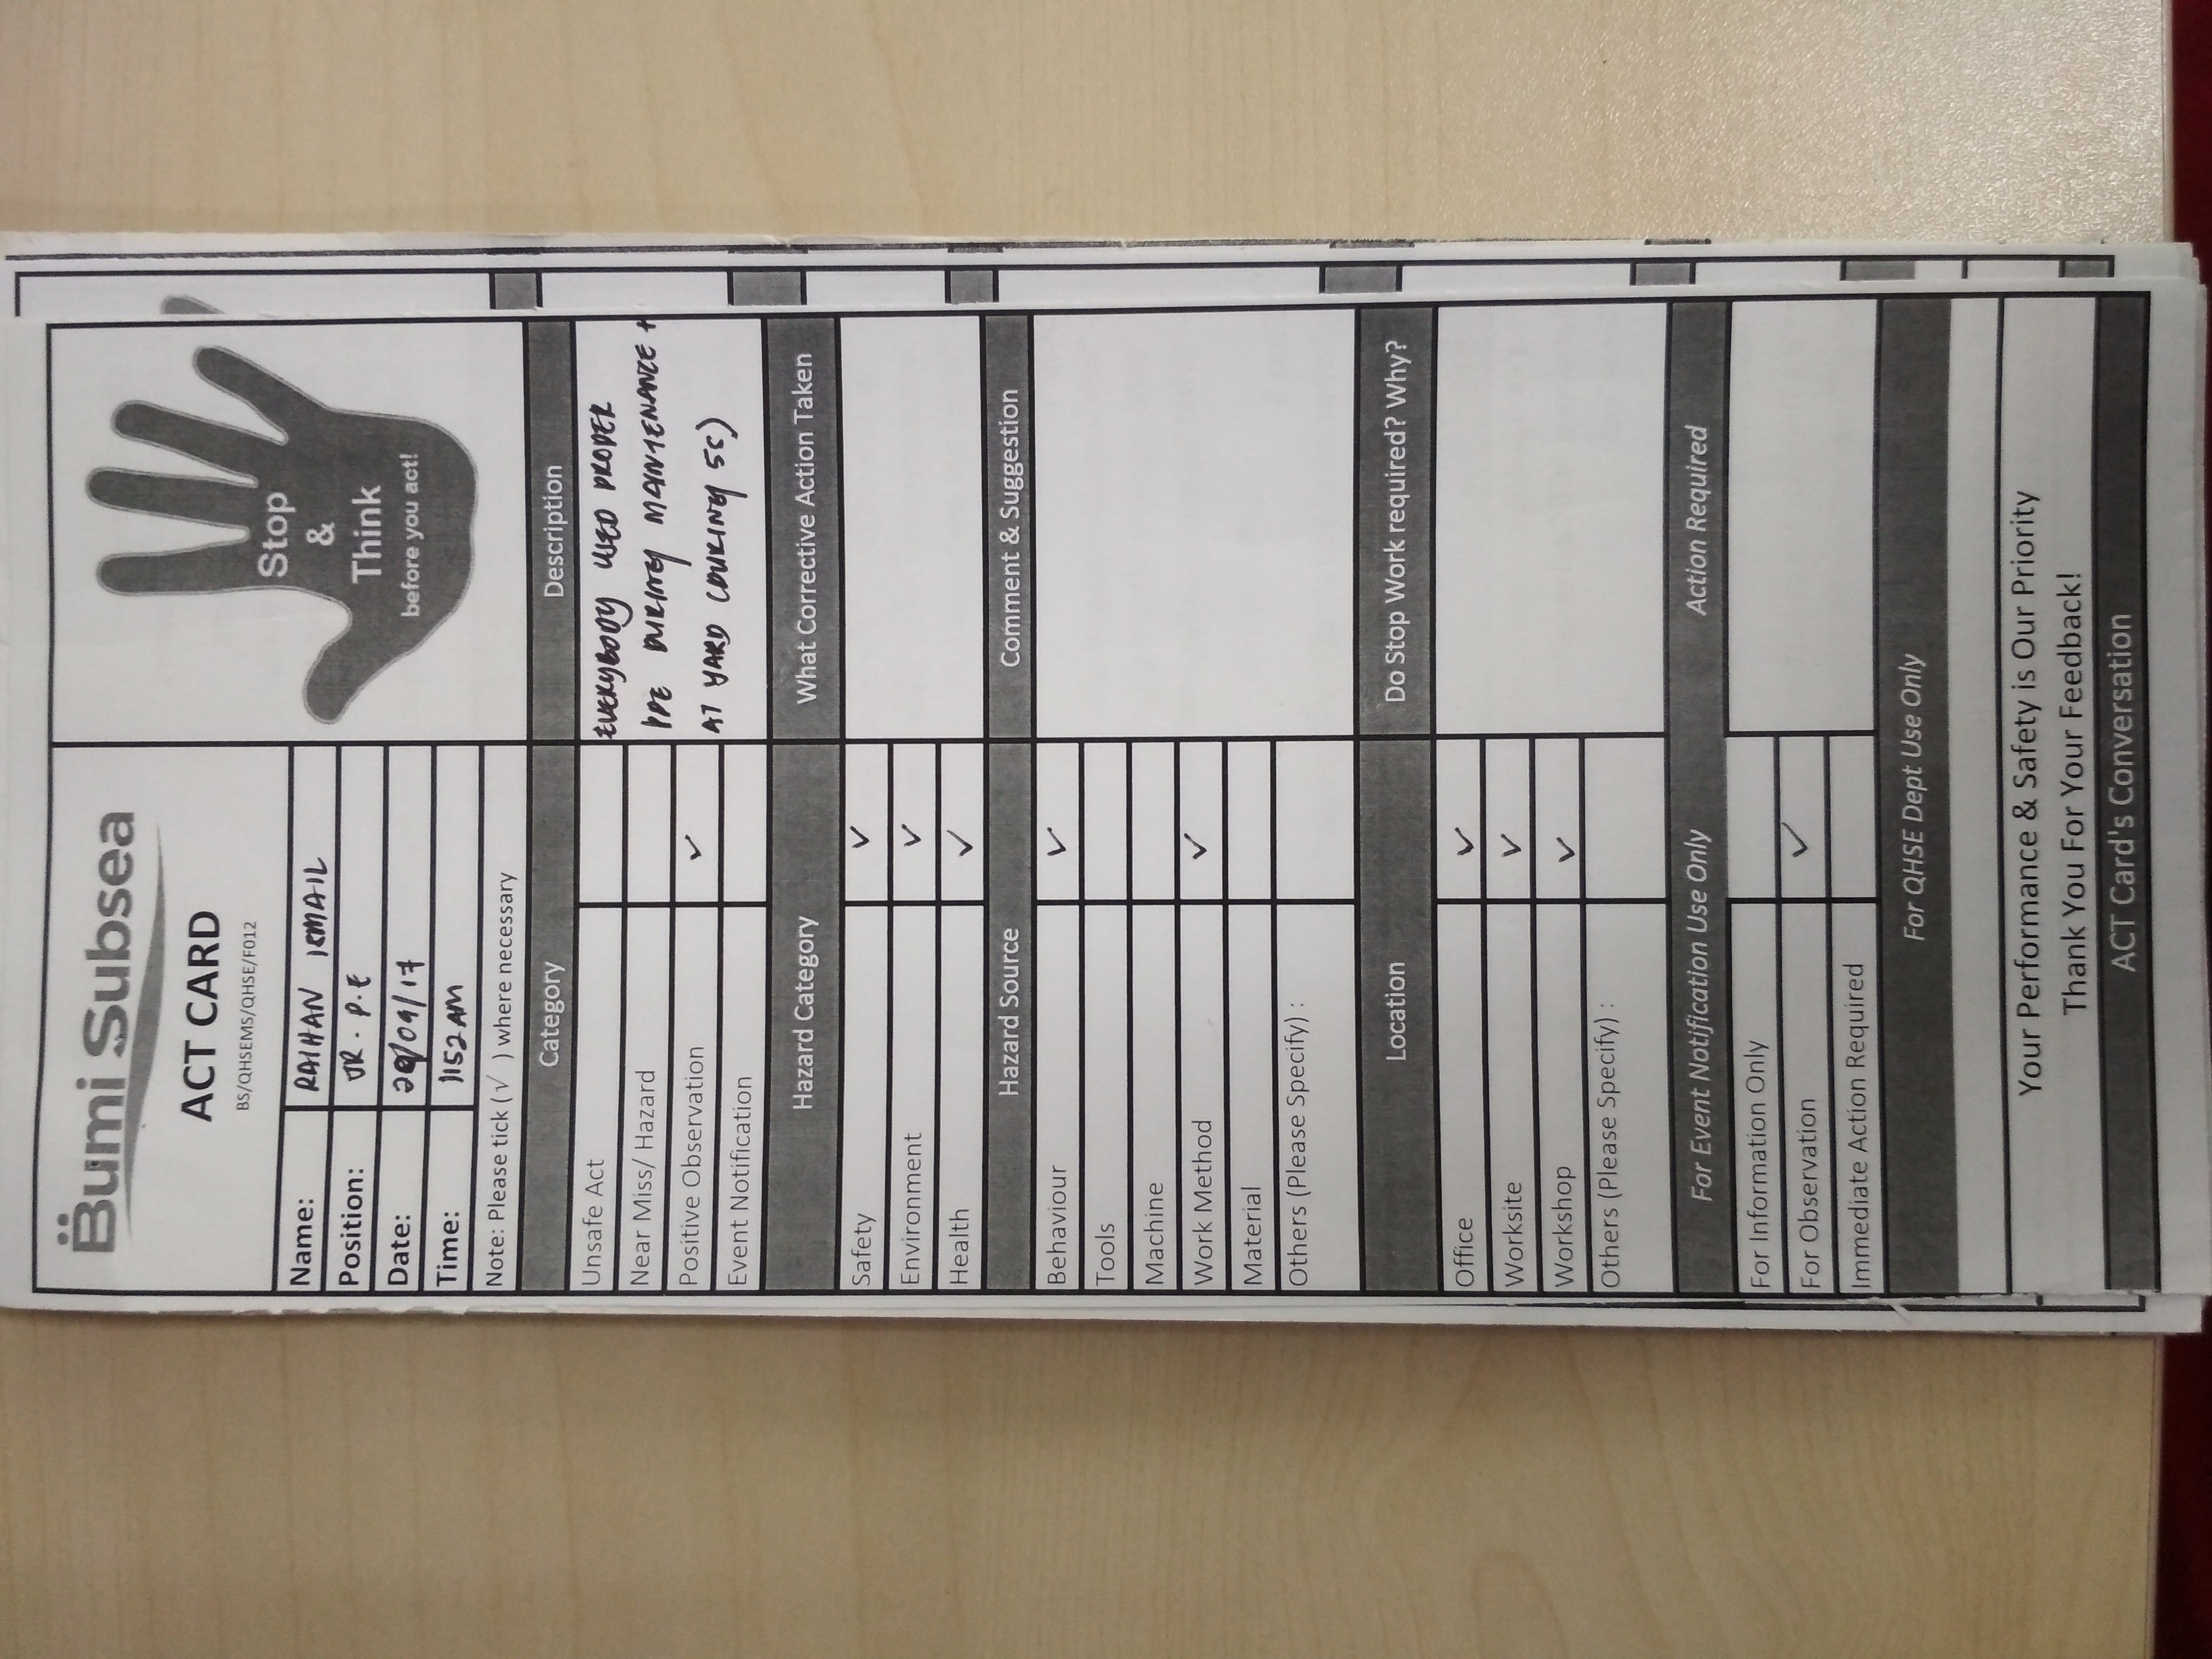 Bumi Subsea
ACT CARD
BS/QHSEMS/QHSE/F012
Stop
&
Think
before you act!
Name: RAIHAN ISMAIL
Position: JR. P.E
Date: 29/09/17
Time: 1152 AM
Note: Please tick ( √ ) where necessary
Category Description
Unsafe Act
Near Miss/ Hazard
Positive Observation ✓
Event Notification
EVERYBODY USED PROPER
PPE DURING MAINTENANCE +
AT YARD (DURING 5S)
Hazard Category What Corrective Action Taken
Safety ✓
Environment ✓
Health ✓
Hazard Source Comment & Suggestion
Behaviour ✓
Tools
Machine
Work Method ✓
Material
Others (Please Specify) :
Location Do Stop Work required? Why?
Office ✓
Worksite ✓
Workshop ✓
Others (Please Specify) :
For Event Notification Use Only Action Required
For Information Only
For Observation ✓
Immediate Action Required
For QHSE Dept Use Only
Your Performance & Safety is Our Priority
Thank You For Your Feedback!
ACT Card's Conversation